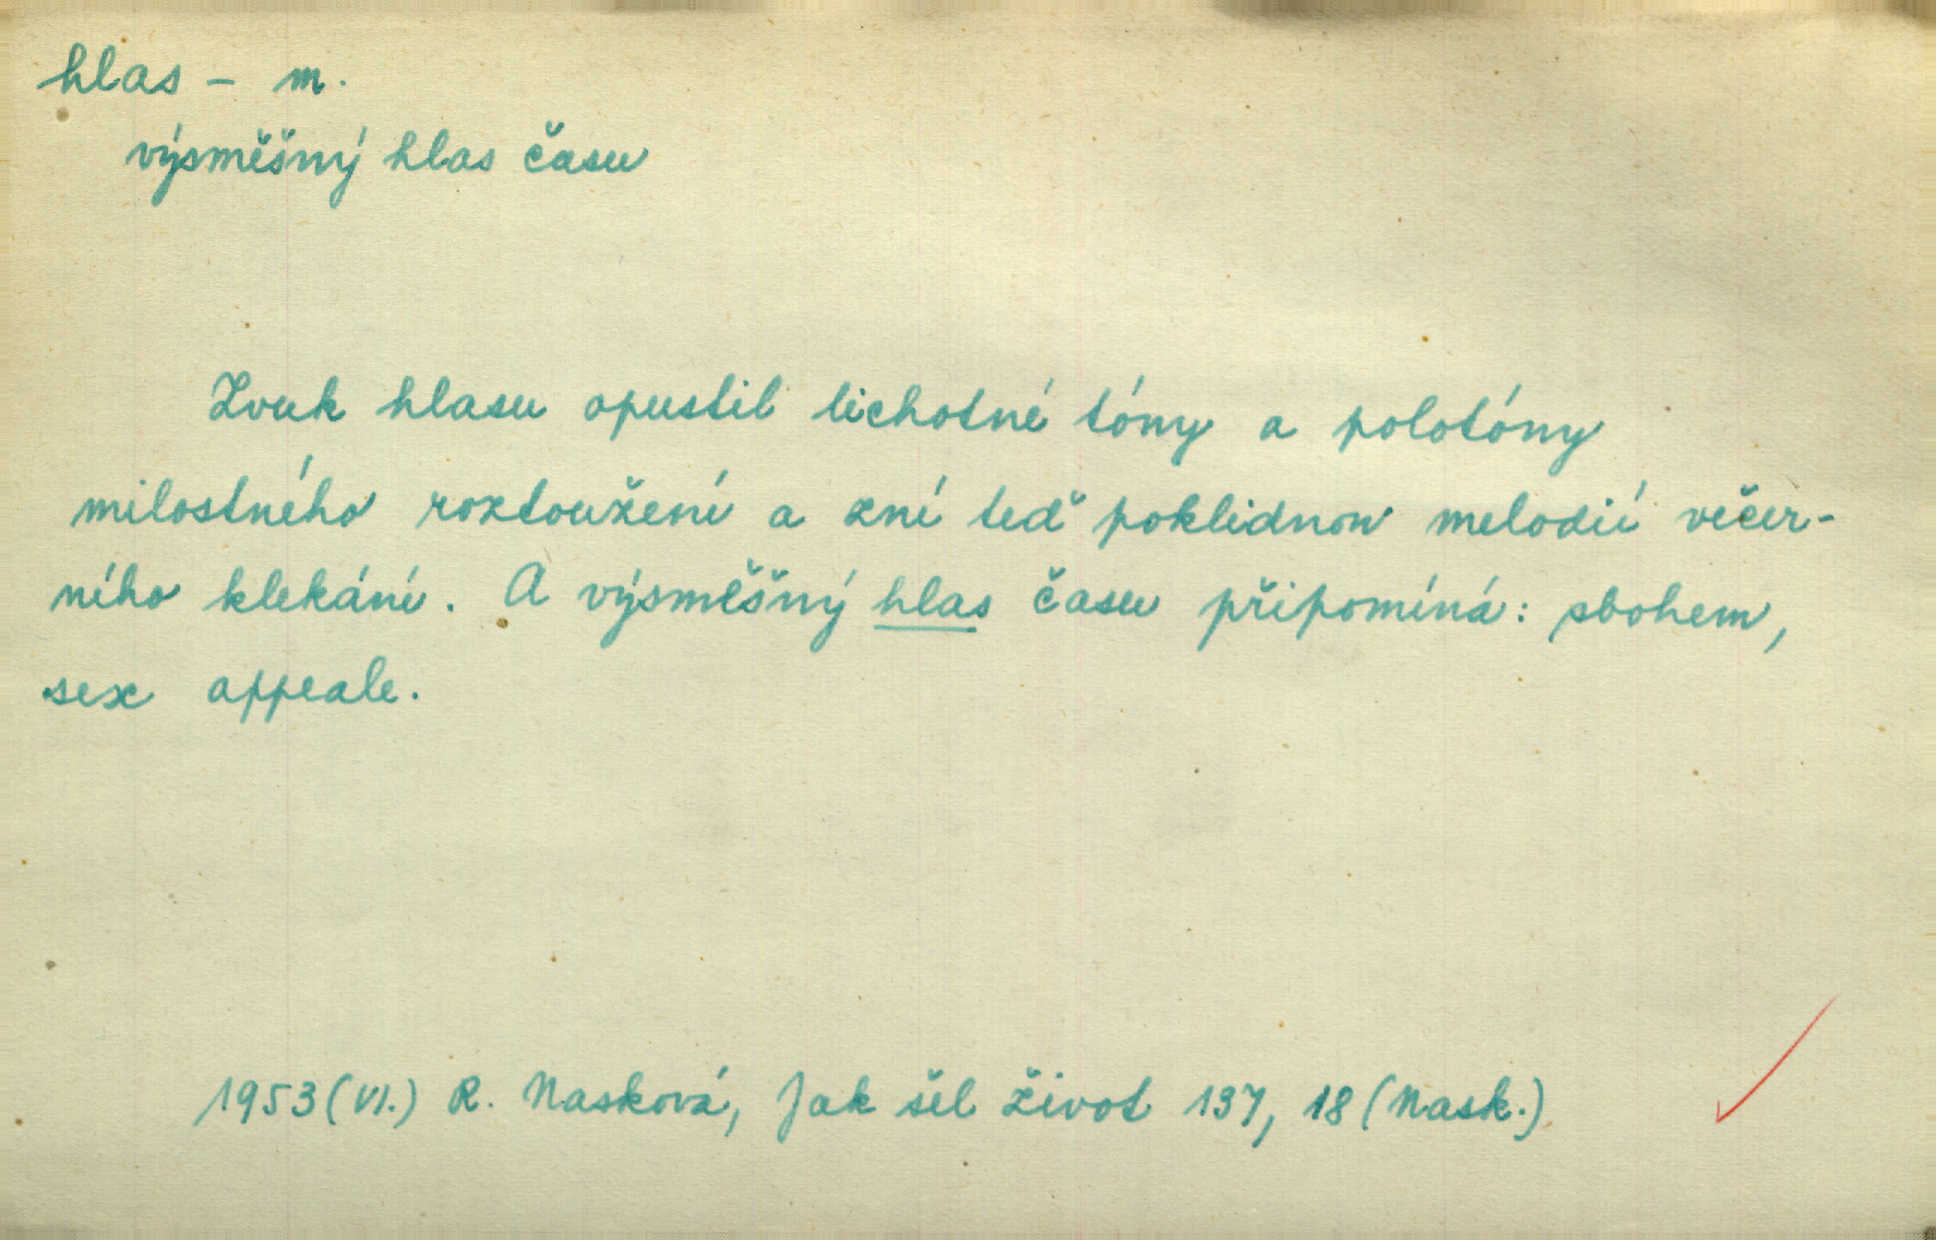 hlas - m.
výsměšný hlas času
Zvuk hlasu opustil lichotné tóny a polotóny
milostného roztoužení a zní teď poklidnou melodií večer-
ního klekání. A výsměšný hlas času připomíná: sbohem,
sex appeale.
1953 (VI.) R. Nasková, Jak šel život 137, 18 (Nask.)